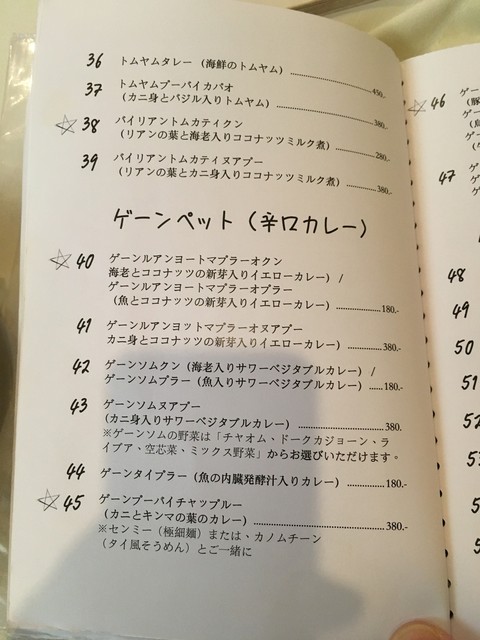 36 トムヤムタレー（海鮮のトムヤム） 450.-
37 トムヤムプーバイカパオ
（カニ身とバジル入りトムヤム） 380.-
☆ 38 バイリアントムカティクン
（リアンの葉と海老入りココナッツミルク煮） 280.-
39 バイリアントムカティヌアプー
（リアンの葉とカニ身入りココナッツミルク煮） 380.-
ゲーンペット（辛口カレー）
☆ 40 ゲーンルアンヨートマプラーオクン
海老とココナッツの新芽入りイエローカレー）/
ゲーンルアンヨートマプラーオプラー
（魚とココナッツの新芽入りイエローカレー） 180.-
41 ゲーンルアンヨットマプラーオヌアプー
カニ身とココナッツの新芽入りイエローカレー） 380.-
42 ゲーンソムクン（海老入りサワーベジタブルカレー）/
ゲーンソムプラー（魚入りサワーベジタブルカレー） 180.-
43 ゲーンソムヌアプー
（カニ身入りサワーベジタブルカレー） 380.
※ゲーンソムの野菜は「チャオム、ドークカジョーン、ラ
イブア、空芯菜、ミックス野菜」からお選びいただけます。
44 ゲーンタイプラー（魚の内臓発酵汁入りカレー） 180.-
☆ 45 ゲーンプーバイチャップルー
（カニとキンマの葉のカレー） 380.-
※センミー（極細麺）または、カノムチーン
（タイ風そうめん）とご一緒に
☆ 46
47
48
49
50
51